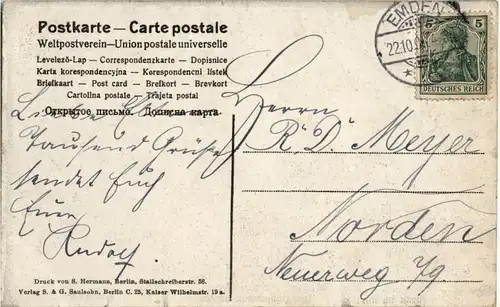 Postkarte — Carte postale
Weltpostverein — Union postale universelle
Levelező-Lap — Correspondenzkarte — Dopisnice
Karta korespondencyjna — Korespondencni listek
Briefkaart — Post card — Brefkort — Brevkort
Cartolina postale — Trajeta postal
Открытое письмо. Дописна карта.
EMDEN
22.10.
5
DEUTSCHES REICH
Liebe
Tausend Grüße
sendet Euch
Euer
Rudolf.
Herrn
R. D. Meyer
Norden
Neuerweg 79
Druck von S. Hermann, Berlin, Stallschreiberstr. 58.
Verlag S. & G. Saulsohn, Berlin C. 25, Kaiser Wilhelmstr. 19 a.